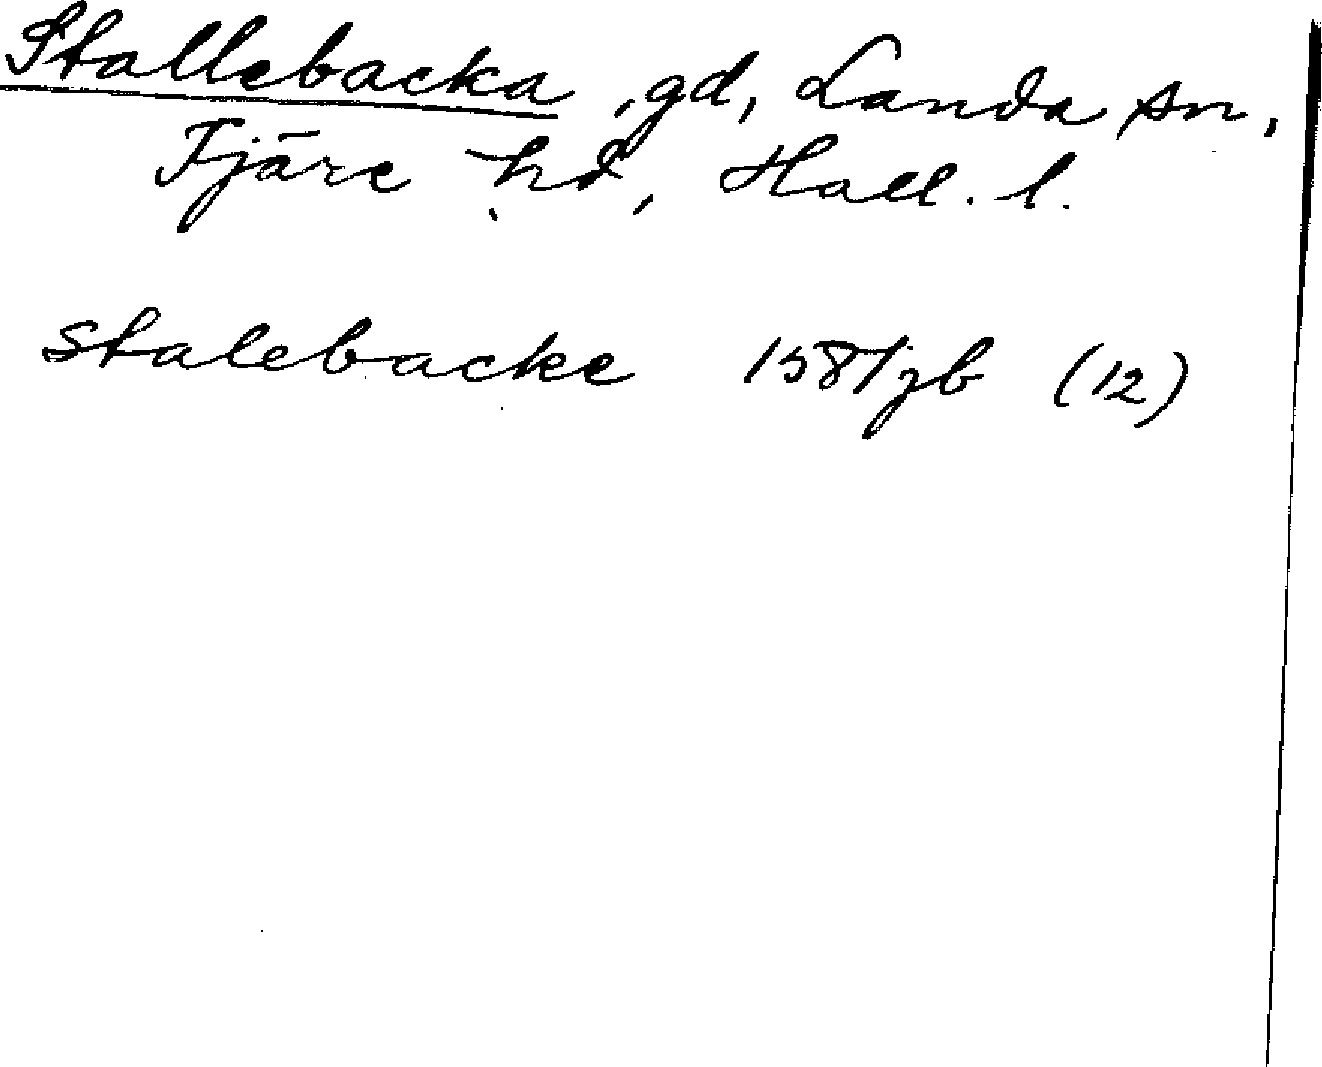 Stallebacka, gd, Landa sn,
Fjäre hd, Hall. l.
Stalebacke 1581 jb (12)